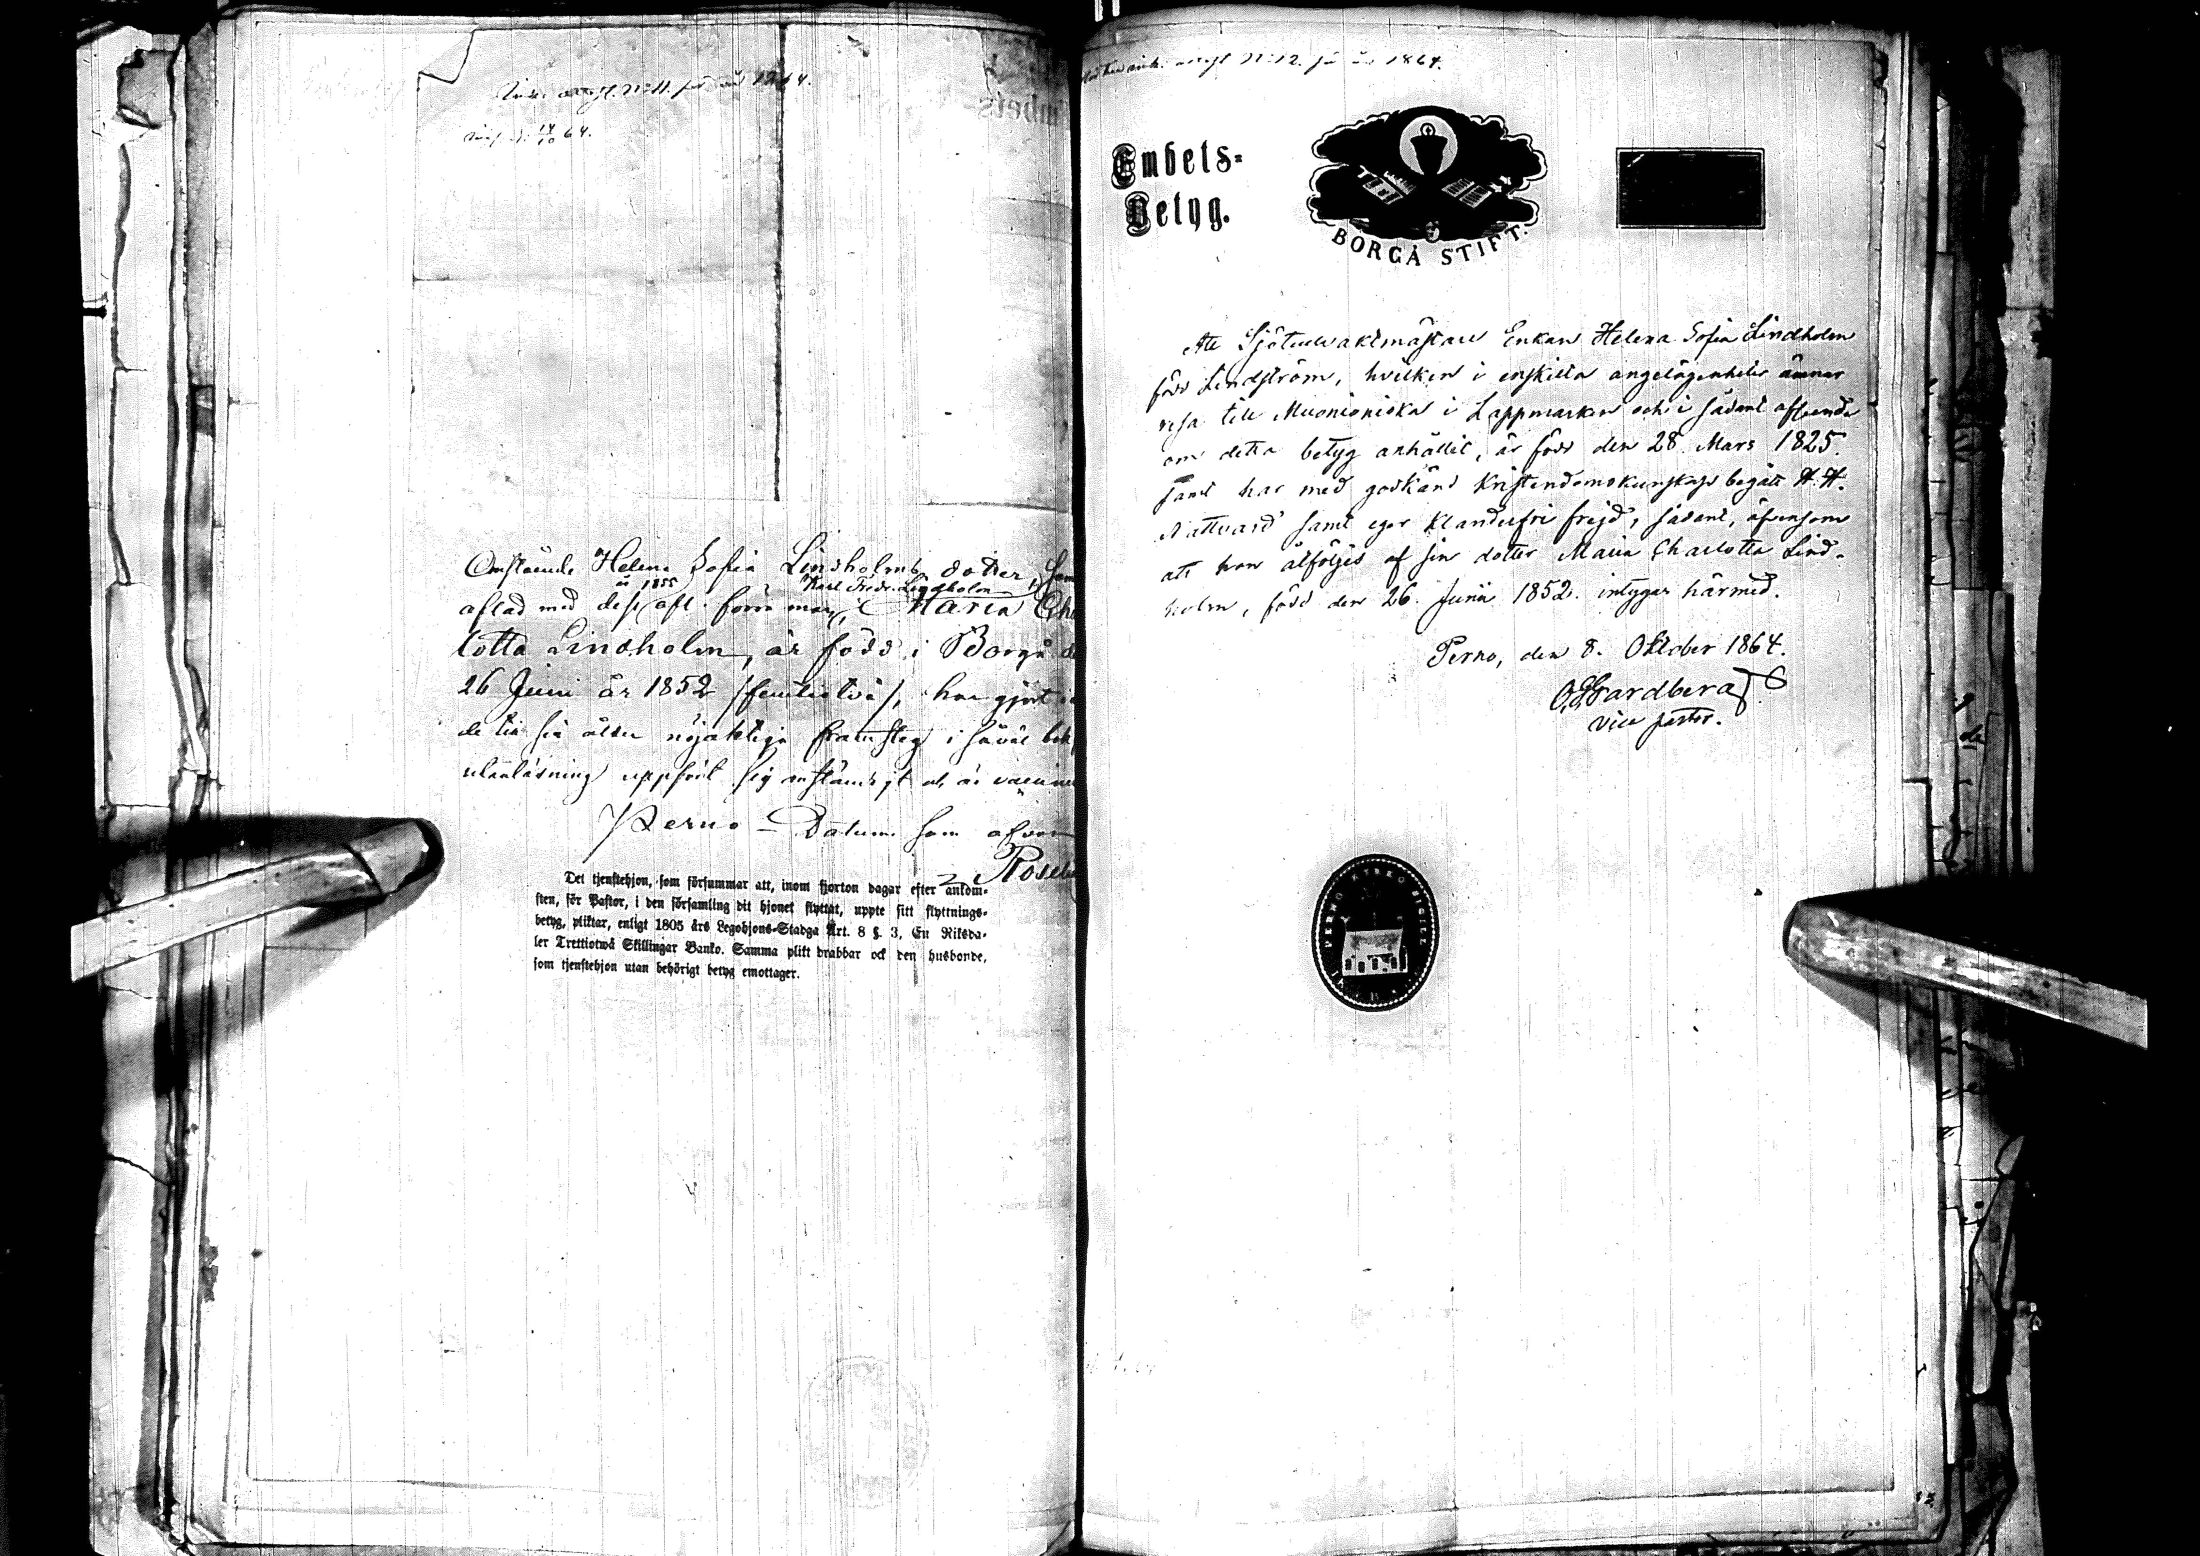 för år 1864.
14/10 64.
Omstående Helena Sofia Lindholms dotter, som
år 1855 Karl Fredr. Lindholm
aflad med dess afl. förra man, Maria Cha
lotta Lindholm, är född i Borgå d
26 Juni år 1852 /femtiotvå/, har gjort
de till sin ålder nöjaktiga framsteg i såväl bok
utanläsning uppfört sig anständigt och är vaccine
Perno Datum som ofvan
Det tjenstehjon, som försummar att, inom fjorton dagar efter ankom-
sten, för Pastor, i den församling dit hjonet flyttat, uppte sitt flyttnings-
betyg, pliktar, enligt 1805 års Legohjons-Stadga Art. 8 §. 3, En Riksda-
ler Trettiotwå Skillingar Banko. Samma plikt drabbar ock den husbonde,
som tjenstehjon utan behörigt betyg emottager.
N:12. för år 1864.
Embets-
Betyg.
BORGÅ STIFT.
Att Sjötullvaktmästare Enkan Helena Sofia Lindholm
född Lindström, hvilken i enskilta angelägenheter ämnar
resa till Muonioniska i Lappmarken och i sådant afseende
om detta betyg anhållit, är född den 28 Mars 1825.
samt har med godkänd Kristendomskunskap begått H. H.
Nattvard samt eger klanderfri frejd, sådant, äfvensom
att hon åtföljes af sin dotter Maria Charlotta Lind-
holm, född den 26. Junii 1852. intygar härmed.
Perno, den 8. Oktober 1864.
Gardberg
vice pastor.
PERNO KYRKO SIGILL